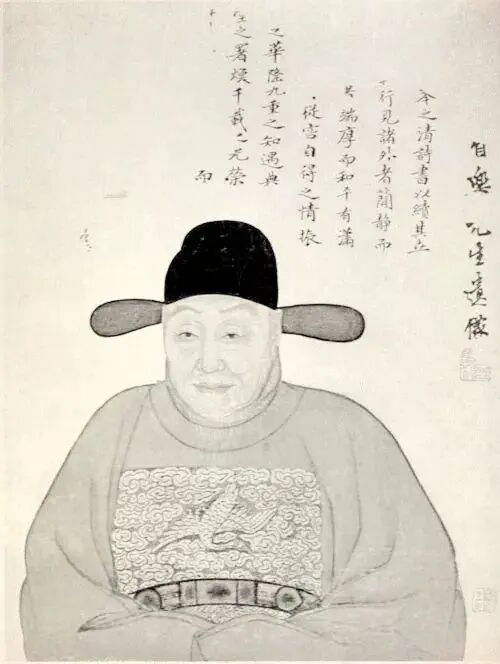 自樂先生遺像
之清詩書以績其立
行見諸外者簡静而
其端厚而和平有瀟
從容自得之情
之華隆九重之知遇典
之署煥千載之光榮
而